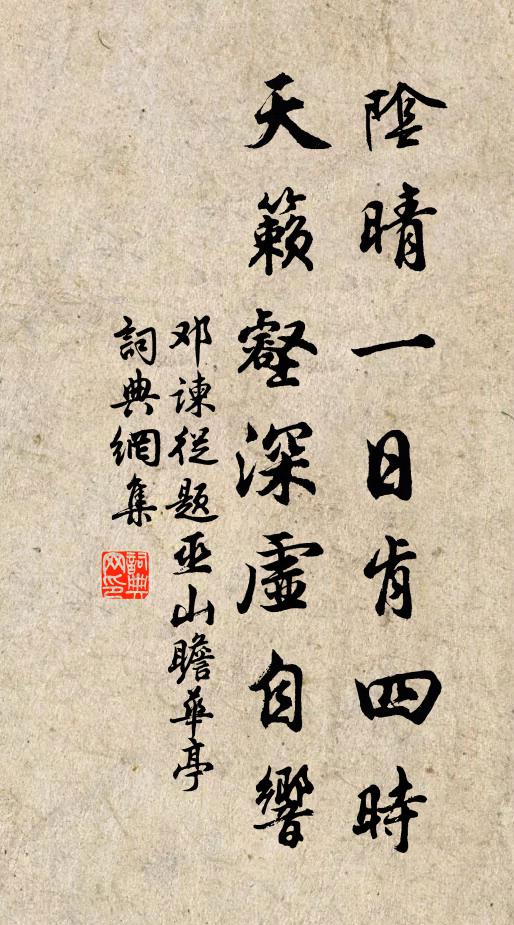 陰晴一日肯四時
天籟壑深虛自響
邓諫從题巫山瞻華亭
詞典網集
詞典网印